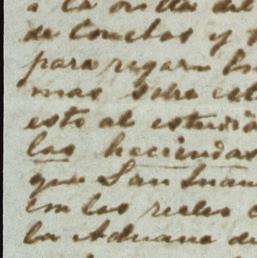 a la orilla del
de conchas y
para regar
mas sobre est
esto al estudio
las haciendas
que San Juan
con los reales
la Aduana de